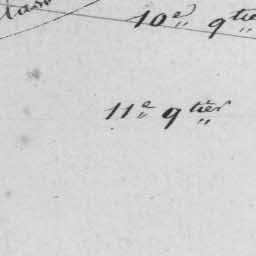 10e qtier
11e qtier